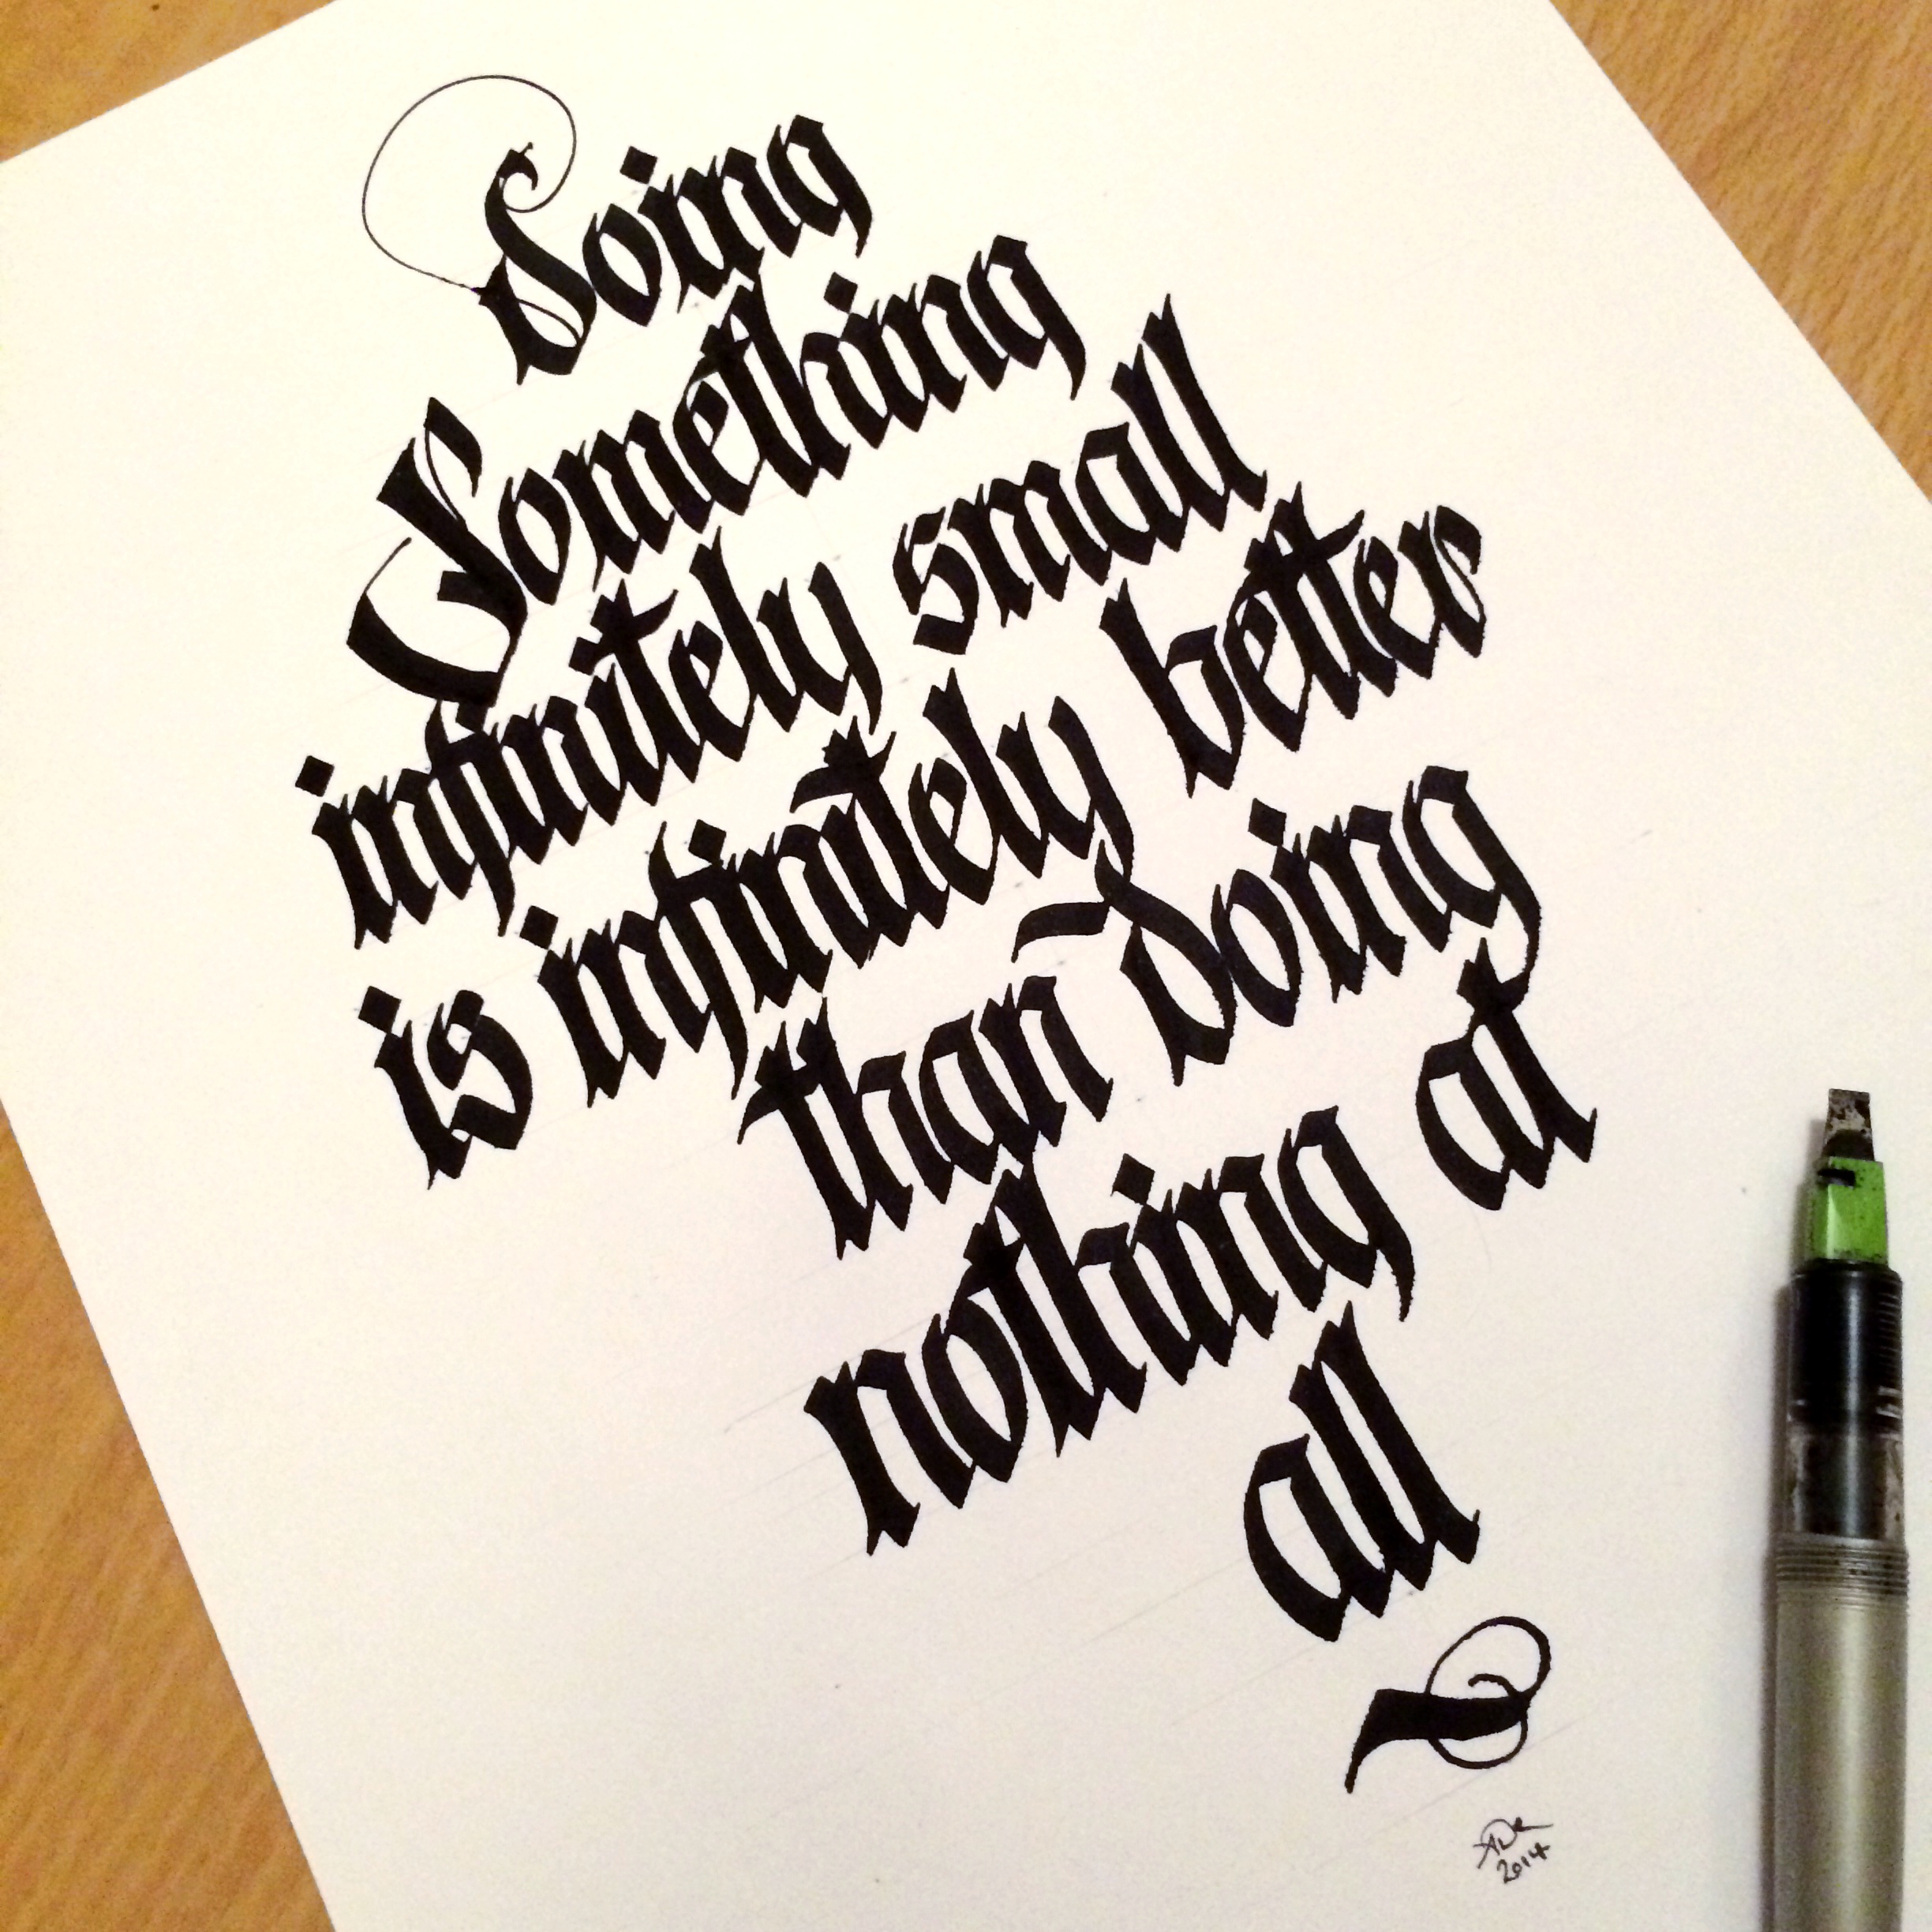 Doing
Something
infinitely small
is infinitely better
than doing
nothing at
all
2014